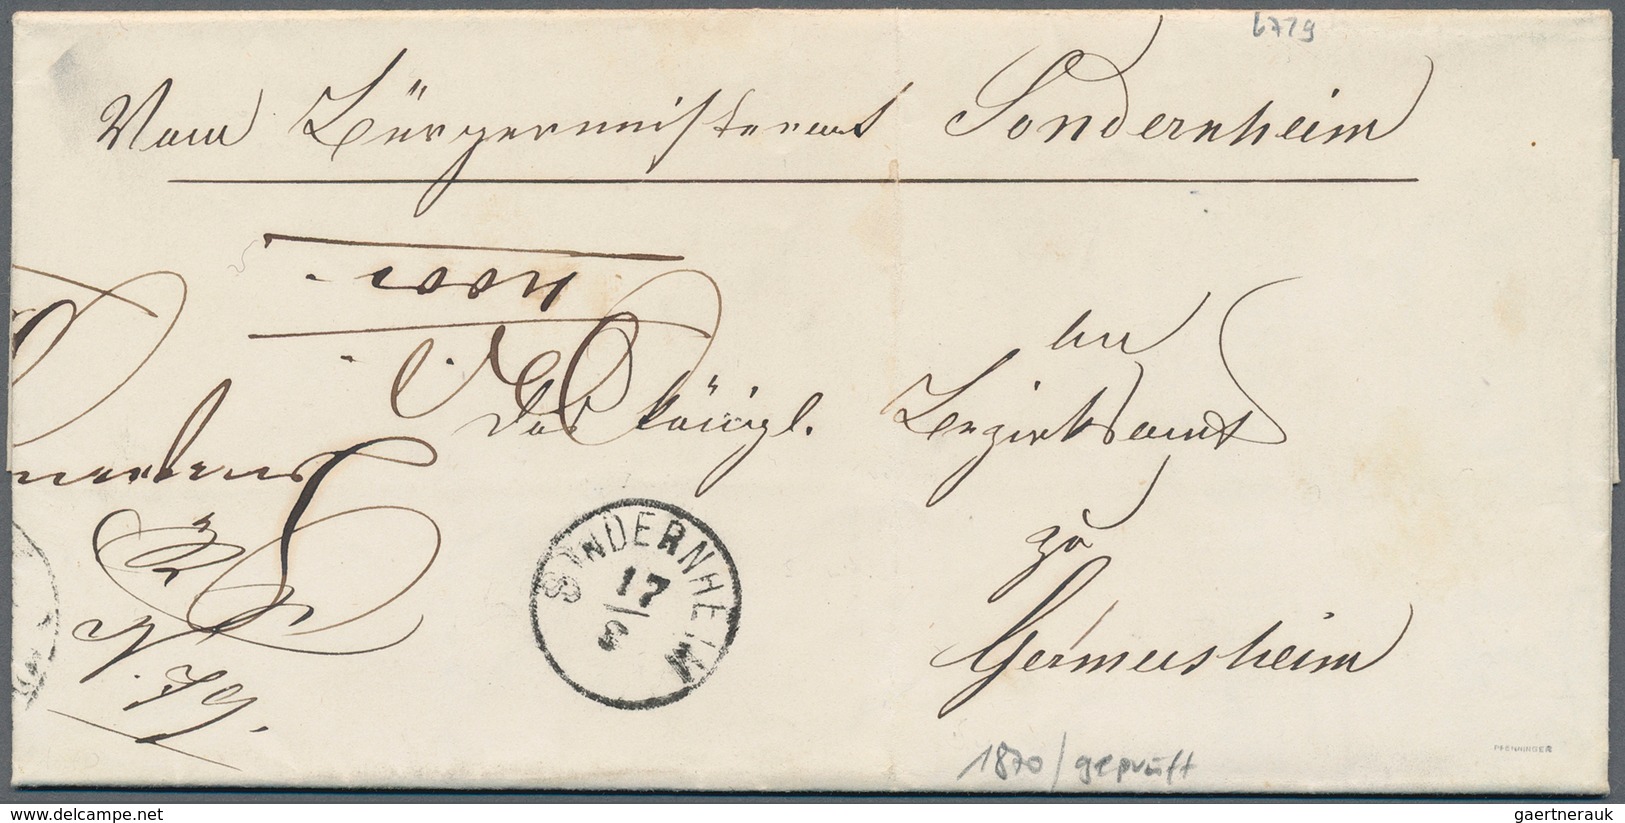 6719
Vom Bürgermeisteramt Sondernheim
An
das königl. Bezirksamt
zu
Germersheim
N. 79.
SONDERNHEIM
17
9
1870/geprüft
PFENNINGER
www.delcampe.net
gaertnerauk